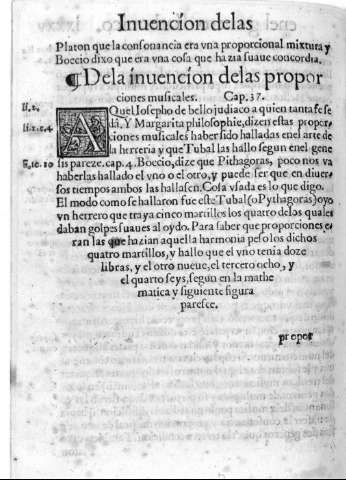 Inuencion delas
Platon que la consonancia era vna proporcional mixtura y
Boecio dixo que era vna cosa que hazia suaue concordia.
¶ Dela inuencion delas propor
ciones musicales. Cap. 37.
AQuel Iosepho de bello judiaco a quien tanta fe se
da. Y Margarita philosophie, dizen estas propor-
ciones musicales haber sido halladas en el arte de
la herreria y que Tubal las hallo segun en el gene
sis pareze. cap. 4. Boccio, dize que Pithagoras, poco nos va
haberlas hallado el vno o el otro, y puede ser que en diuer
sos tiempos ambos las hallasen. Cosa vsada es lo que digo.
El modo como se hallaron fue este Tubal (o Pythagoras) oyo
vn herrero que traya cinco martillos los quatro delos quales
daban golpes suaues al oydo. Para saber que proporciones e-
ran las que hazian aquella harmonia peso los dichos
quatro martillos, y hallo que el vno tenia doze
libras, y el otro nueue, el tercero ocho, y
el quarto seys, segun en la mathe
matica y siguiente figura
paresce.
propor